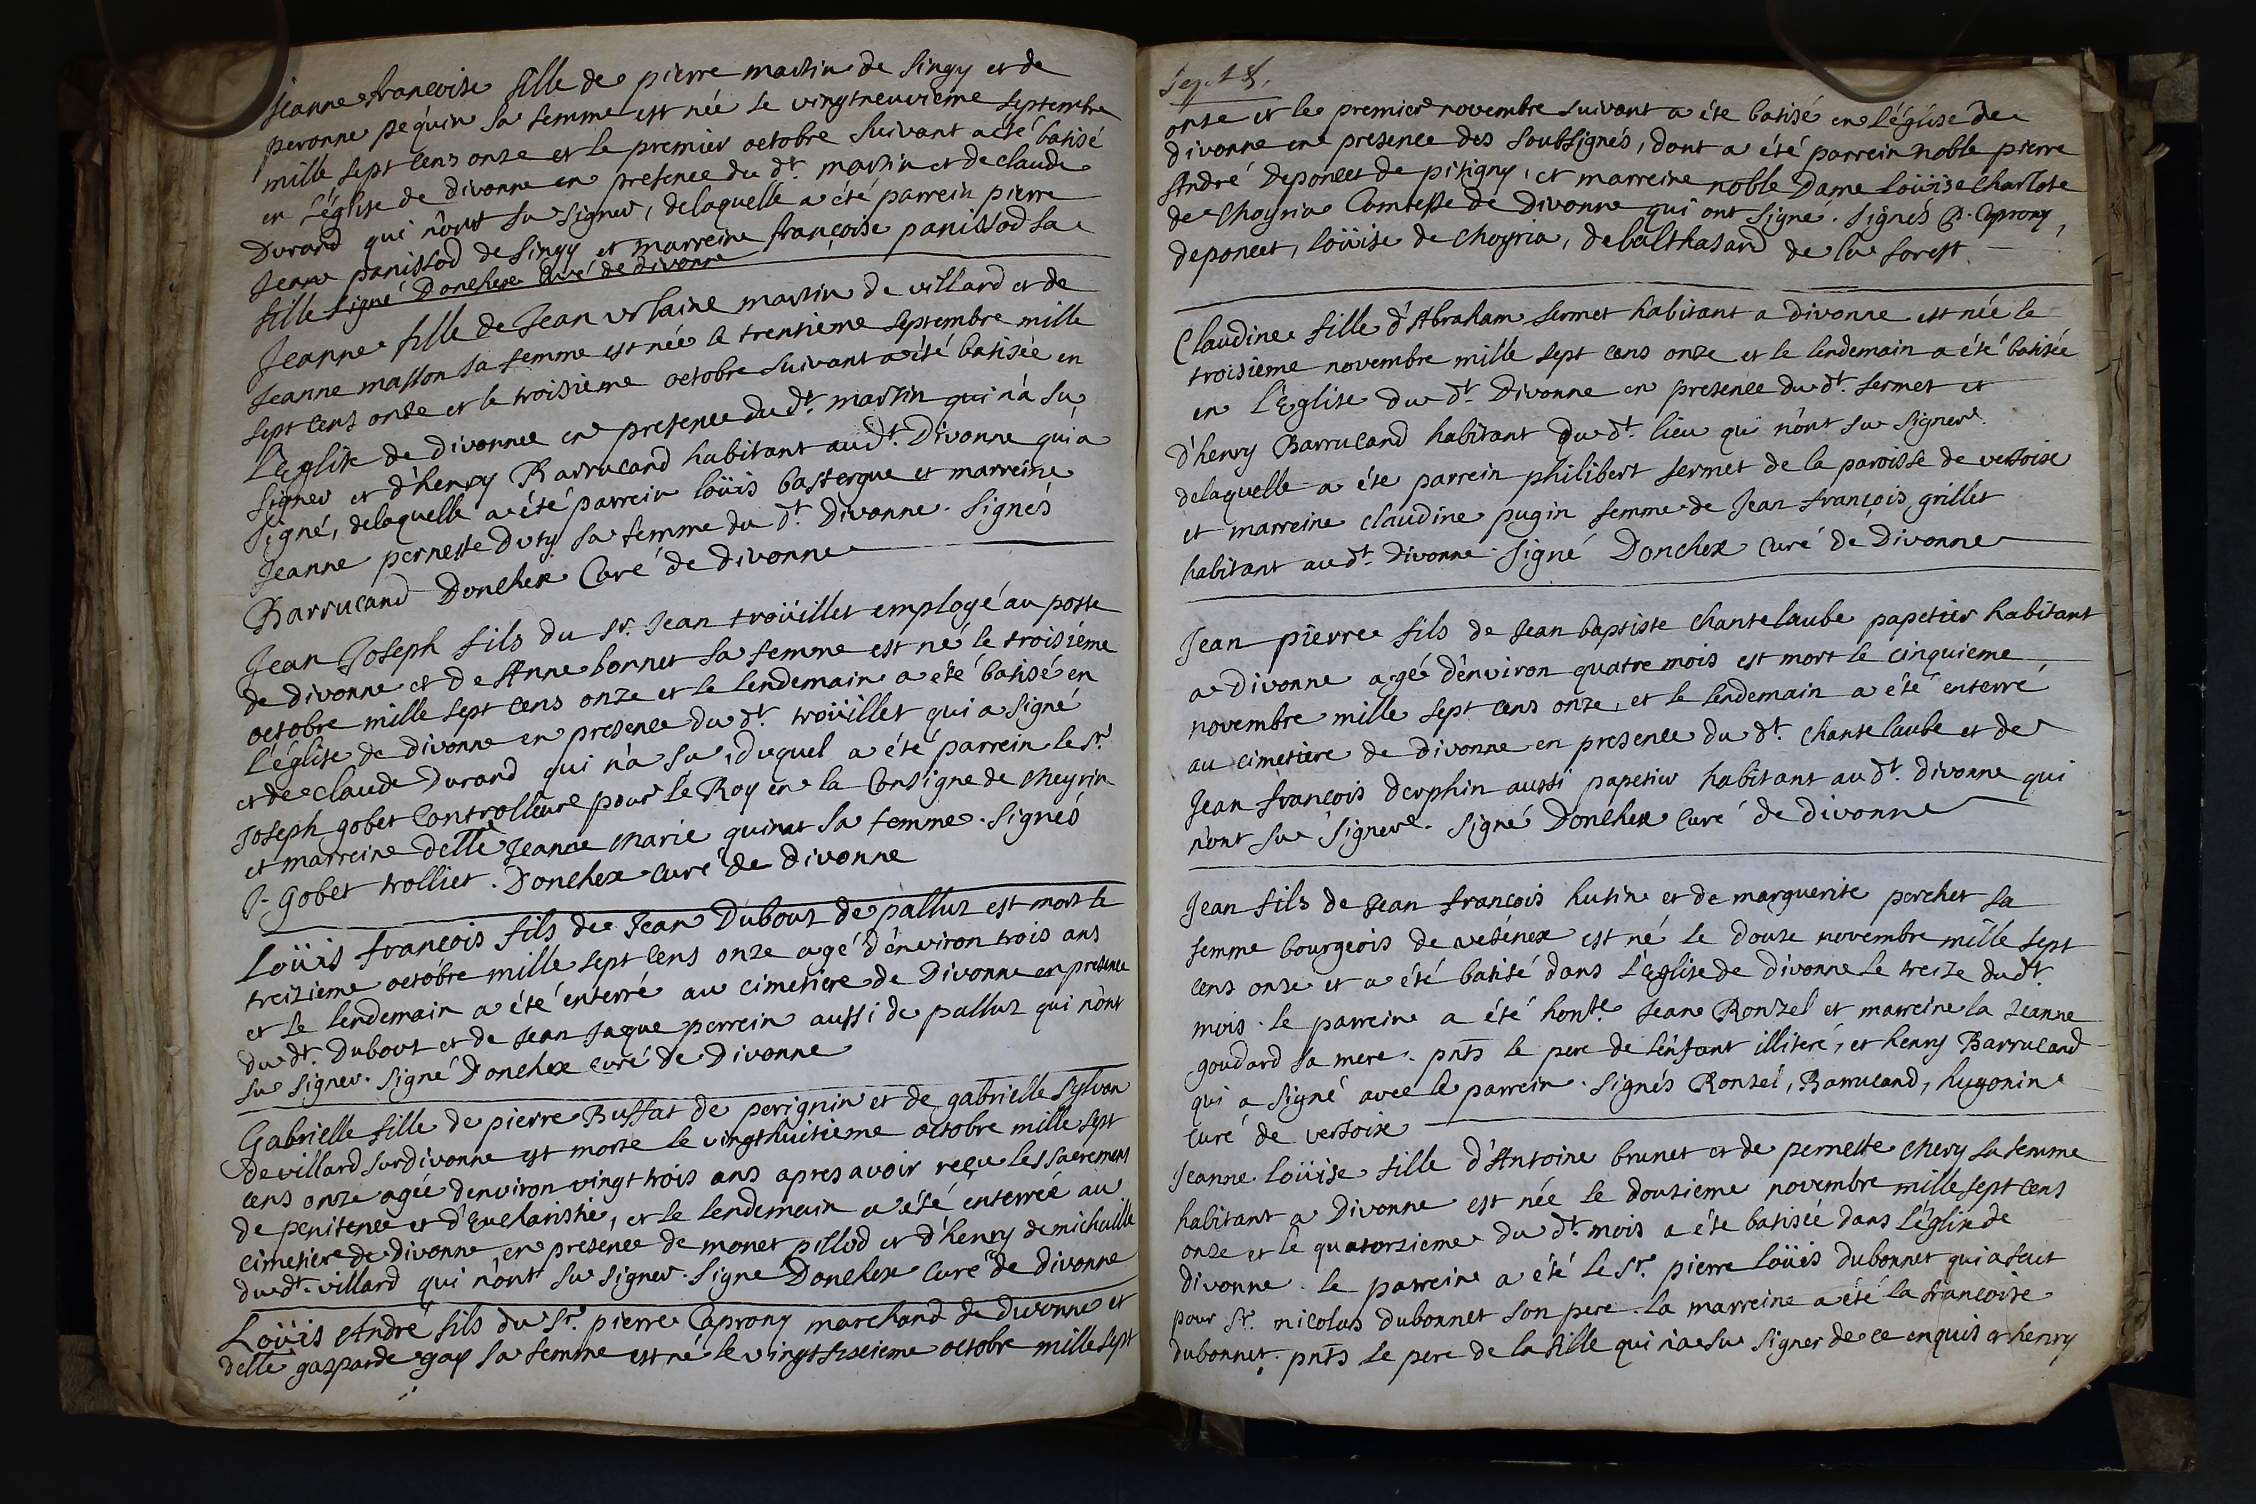 Jeanne françoise fille de pierre martin de Singy et de
peronne pequin sa femme est née le vingtneuvieme septembre
mille sept cens onze et le premier octobre suivant a eté batisé
en l'église de divonne en presence du dt. martin et de claude
Durand qui n'ont su signer, delaquelle a été parrein pierre
Jean panissod de Singy et marreine françoise panissod sa
fille signé Donchex curé de divonne
Jeanne fille de Jean urbaine martin de villard et de
Jeanne masson sa femme est née le trentieme septembre mille
sept cens onze et le troisieme octobre suivant a été batisée en
l'Eglise de divonne en presence du dt. martin qui n'a su
signer et d'henry Barrucand habitant au dt. Divonne qui a
signé, delaquelle a été parrein loüis bastergue et marreine
Jeanne pernette Duty sa femme du dt. Divonne. Signés
Barrucand Donchex Curé de divonne
Jean Joseph fils du sr. Jean troüillet employé au poste
de divonne et de Anne bonnet sa femme est né le troisiéme
octobre mille sept cens onze et le lendemain a été batisé en
l'église de divonne en presence du dt. troüillet qui a signé
et de claude Durand qui n'a su, duquel a été parrein le sr.
Joseph gobet Controlleur pour le Roy en la Consigne de cheyrin
et marreine delle Jeanne marie quinet sa femme. Signés
J. Gobet trolliet. Donchex curé de divonne
Loüis françois fils de Jean Dubout de palluz est mort le
treizieme octobre mille sept cens onze agé d'environ trois ans
et le lendemain a été enterré au cimetiere de Divonne en presence
du dt. Dubout et de Jean Jaque perrein aussi de palluz qui n'ont
su signer. Signé Donchex curé de Divonne
Gabrielle fille de pierre Buffat de perignin et de gabrielle Sylvan
de villard sur divonne est morte le vingthuitieme octobre mille sept
cens onze agée d'environ vingt trois ans apres avoir reçu les sacremens
de penitence et d'Eucharistie, et le lendemain a été enterrée au
cimetiere de divonne en presence de monet pillod et d'henry demichaille
du dt. villard qui n'ont su signer. Signé Donchex curé de divonne
Loüis André fils du sr. pierre Caprony marchand de divonne et
delle gasparde gay sa femme est né le vingt sixieme octobre mille sept
onze et le premier novembre suivant a été batisé en l'église de
divonne en presence des soubsignés, dont a été parrein noble pierre
André deponcet de pitigny, et marreine noble Dame loüise charlote
de choyria Comtesse de divonne qui ont signé. Signés Caprony,
deponcet, loüise de choyria, de balthasard de la forest.
Claudine fille d'Abraham sermet habitant a divonne est née le
troisieme novembre mille sept cens onze et le lendemain a été batisée
en l'Eglise du dt. Divonne en presence du dt. sermet et
d'henry Barrucand habitant du dt. lieu qui n'ont su signer.
delaquelle a été parrein philibert sermet de la paroisse de versoix
et marreine claudine pugin femme de Jean françois grillet
habitant au dt. Divonne. Signé Donchex Curé de Divonne
Jean pierre fils de Jean baptiste chantelaube papetier habitant
a Divonne agé d'environ quatre mois est mort le cinquieme
novembre mille sept cens onze, et le lendemain a été enterré
au cimetiere de divonne en presence du dt. chantelaube et de
Jean françois derphin aussi papetier habitant au dt. divonne qui
n'ont su signer. Signé Donchex curé de divonne
Jean fils de Jean françois hutin et de marguerite perchet sa
femme bourgeois de vesenex est né le douze novembre mille sept
cens onze et a été batisé dans l'Eglise de divonne le treize du dt.
mois. le parrein a été honble. Jean Ronzel et marreine la Jeanne
goudard sa mere. pnts le pere de l'enfant illiteré, et henry Barrucand
qui a signé avec le parrein. Signés Ronzel, Barrucand, hugonin
curé de versoix
Jeanne loüise fille d'Antoine brunet et de pernette chery sa femme
habitant a Divonne est née le douzieme novembre mille sept cens
onze et le quatorzieme du dt. mois a été batisée dans l'église de
divonne. le parrein a été le sr. pierre loüis dubonnet qui a fait
pour sr. nicolas dubonnet son pere. la marreine a été la françoise
dubonnet. pnts le pere de la fille qui n'a su signer de ce enquis et henry